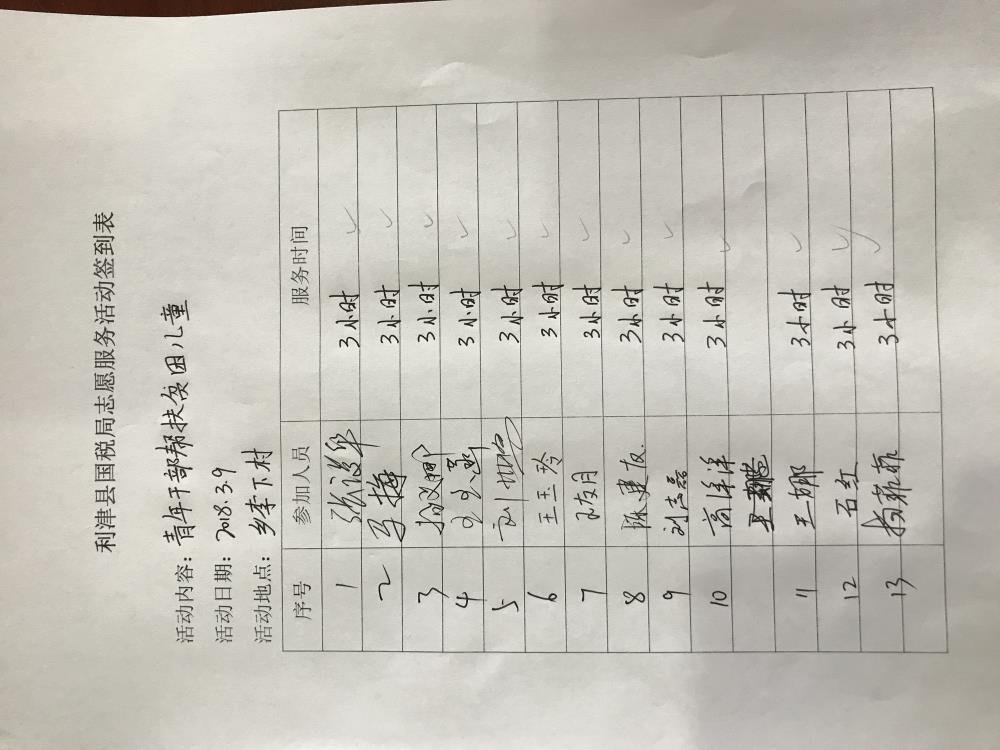 利津县国税局志愿服务活动签到表
活动内容：青年干部帮扶贫困儿童
活动日期：2018.3.9
活动地点：乡李下村
序号 参加人员 服务时间
1 3小时 ✓
2 3小时 ✓
3 3小时 ✓
4 3小时 ✓
5 3小时 ✓
6 王玉玲 3小时 ✓
7 3小时 ✓
8 陈建友 3小时 ✓
9 刘志磊 3小时 ✓
10 高洋洋 3小时 ✓
11 王娜 3小时 ✓
12 石红 3小时 ✓
13 菲菲 3小时 ✓